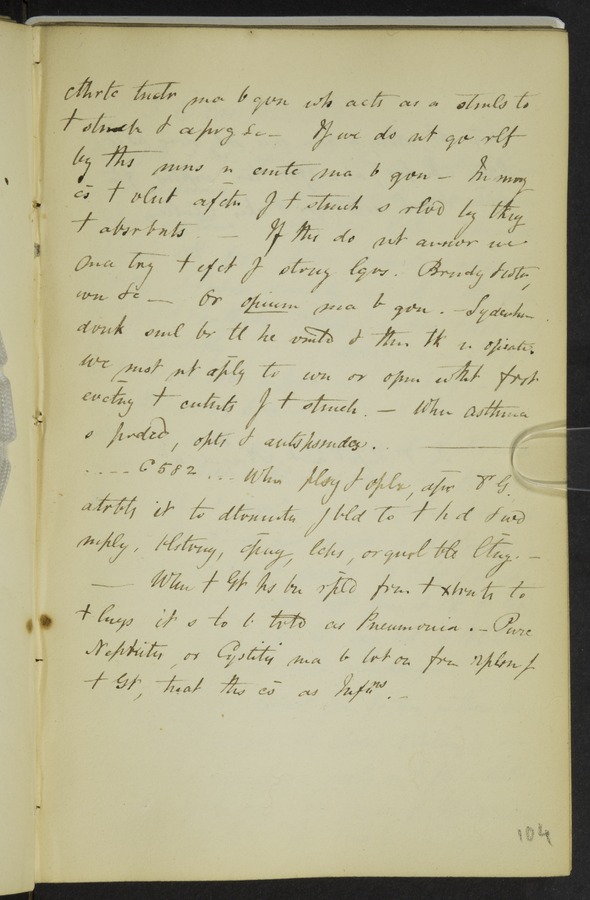 cthrtc tnctr ma b gvn wh acts as a stmls to
† stmch & aprg &c — If we do nt gv rlf
by ths mns n emtc ma b gvn — In mny
cs † vlnt afctn f † stmch s rlvd by thg
† absrbnts — If ths do nt answr we
ma try † efct f strng lqrs. Brndy & wtr,
wn &c — Or opium ma b gvn. — Sydenhm
drnk sml br tl he vmtd & thn tk n opiate.
We mst nt aply to wn or opm wtht frst
evctng † cntnts f † stmch. — Whn asthma
s prdcd, opts & antspsmdcs.
.... C 582 ... Whn plsy & oplx, apr Dr G.
atrbts it to dtrmntn f bld to † hd & wd
mply, blstrng, cpng, lchs, or gnrl bld ltng. —
— Whn † Gt hs bn rpld frm † xtrmts to
† lngs it s to b trtd as Pneumonia. — Pure
Nephritis, or Cystitis ma b brt on frm rplsn f
† Gt, treat ths cs as Infms. —
104